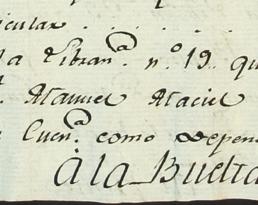 icular
la Libran.ª n.º 19. qu
Manuel Maciel
Cuen.ª como Depen
à la Buelta